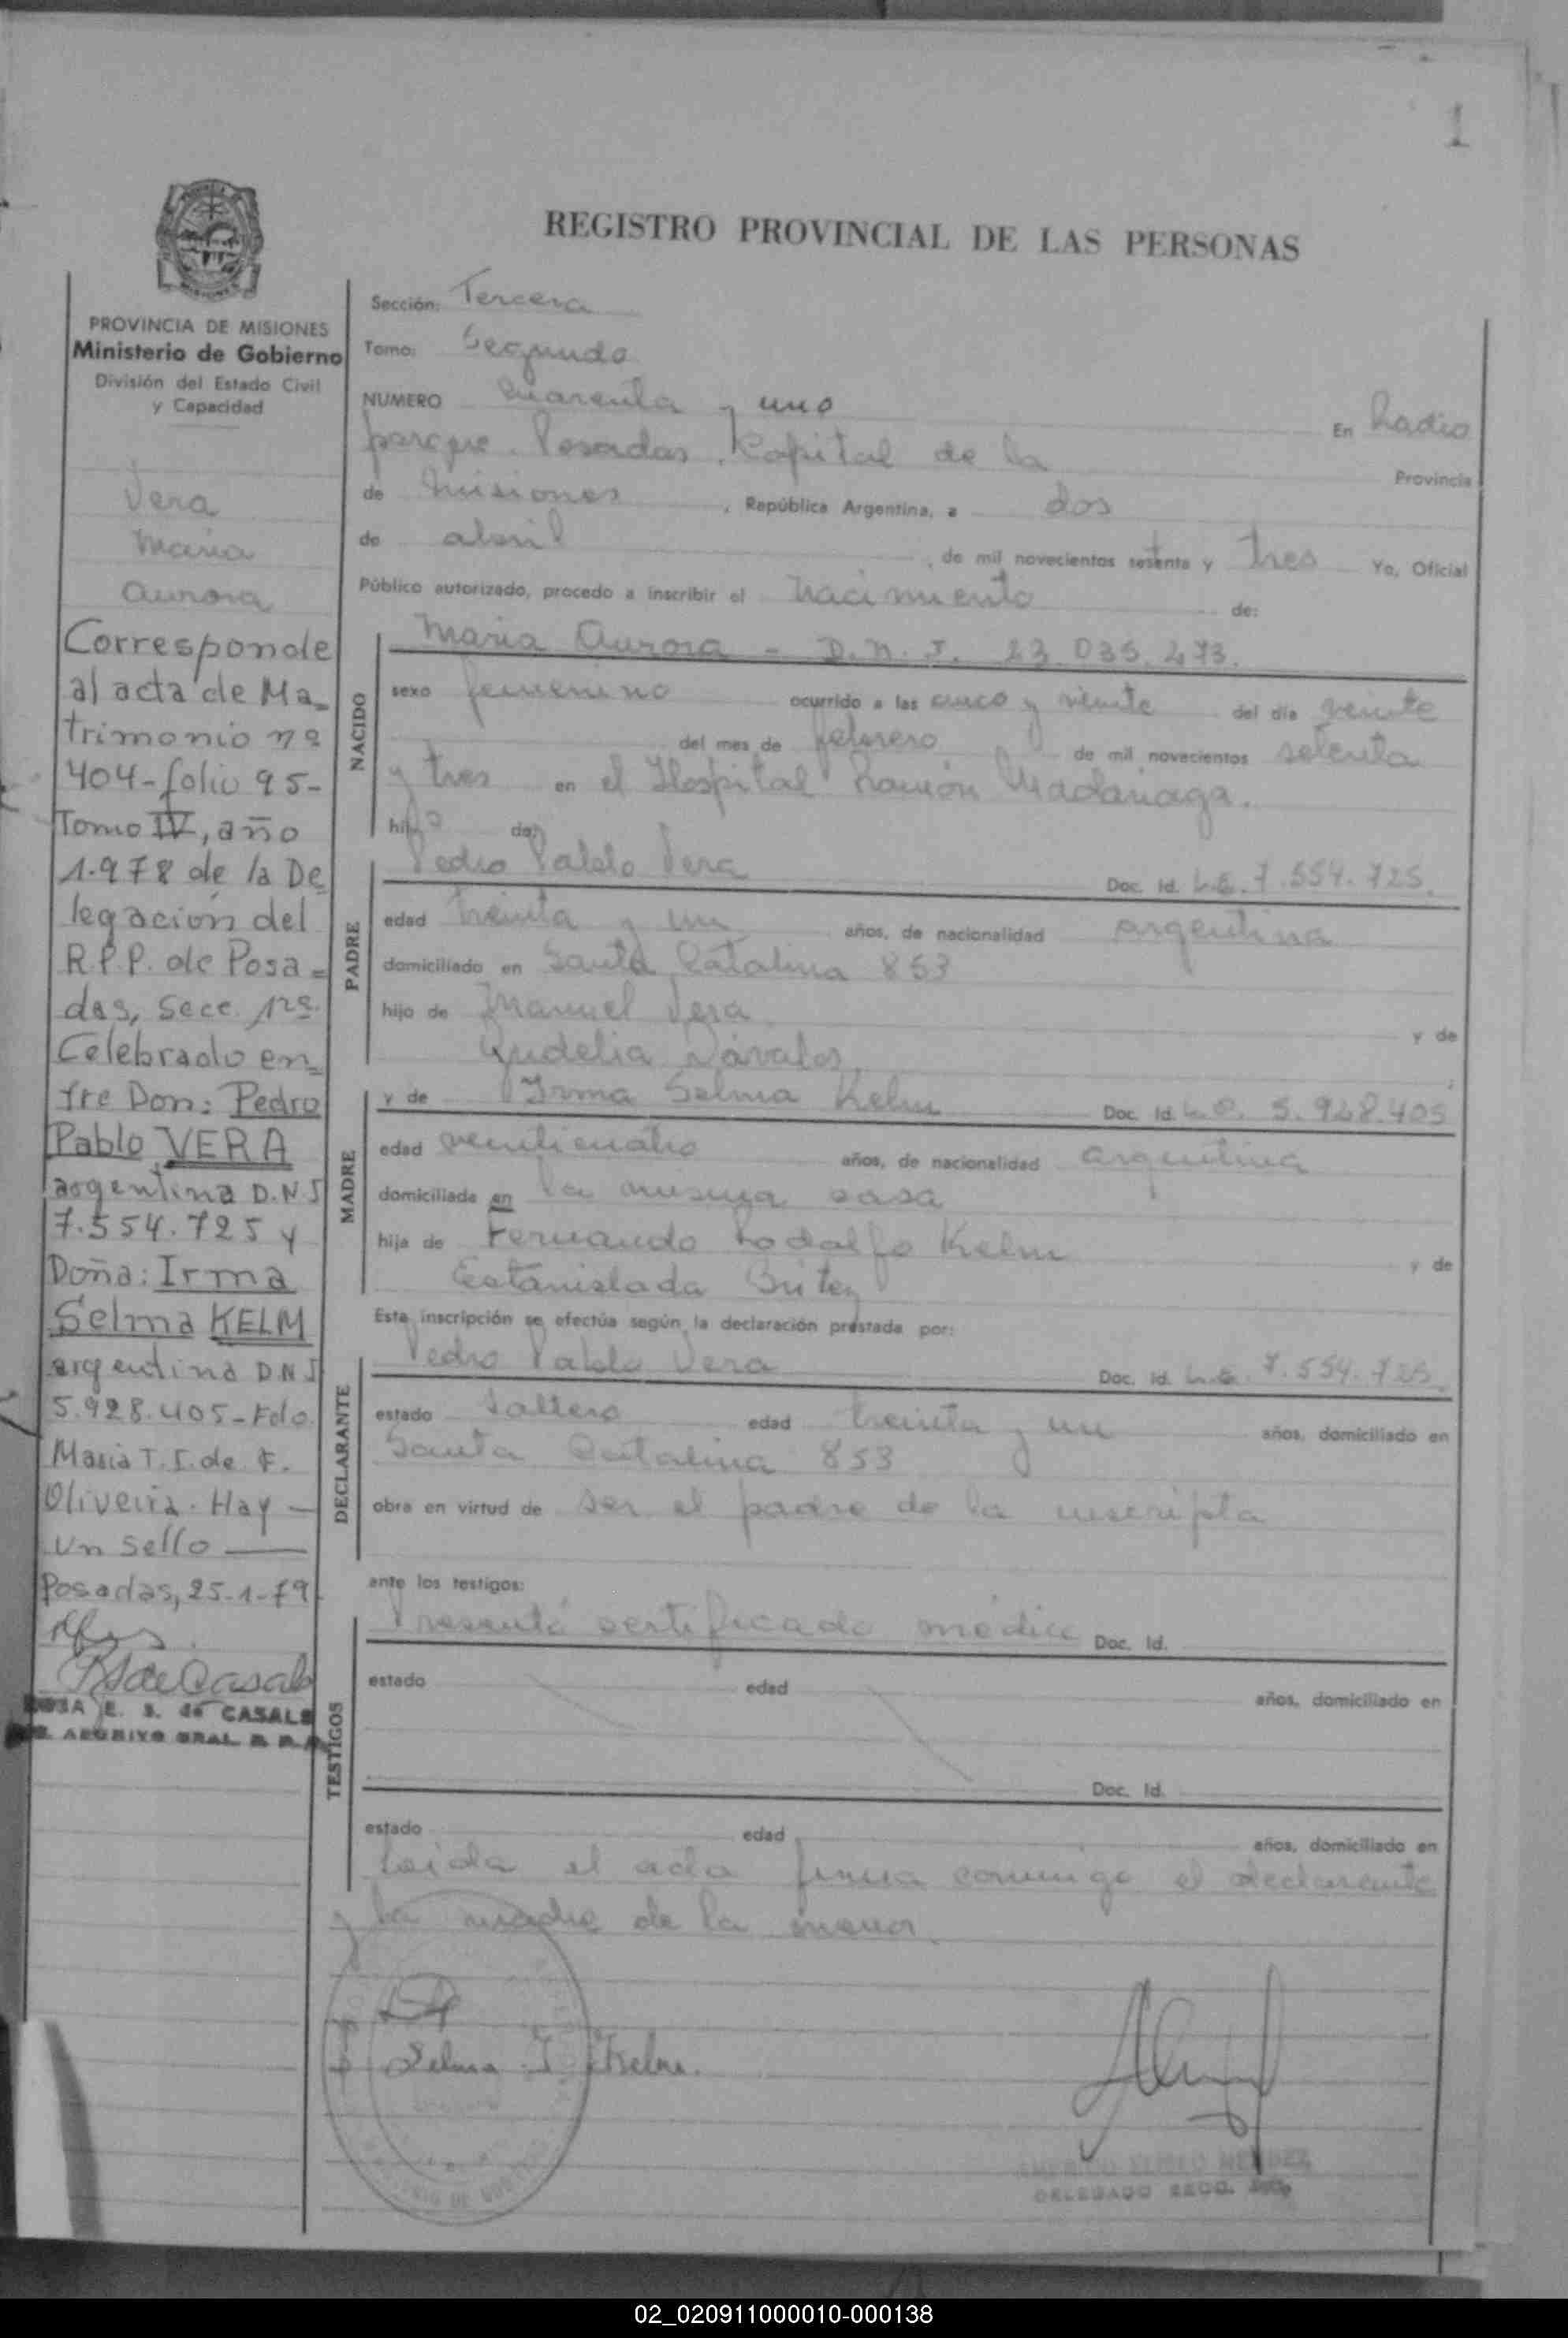 1
REGISTRO PROVINCIAL DE LAS PERSONAS
PROVINCIA DE MISIONES
Ministerio de Gobierno
División del Estado Civil
y Capacidad
Vera
Maria
Aurora
Corresponde
al acta de Ma-
trimonio nº
404-folio 95-
Tomo IV, año
1.978 de la De
legación del
R.P.P. de Posa=
das, Secc. 1ra.
Celebrado en=
tre Don: Pedro
Pablo VERA
argentina D.N.I
7.554.725 y
Doña: Irma
Selma KELM
argentina D.N.I
5.928.405-Fdo.
Maria T. I. de F.
Oliveira. Hay -
un sello
Posadas, 25-1-79
ROSA E. S. de CASALS
ARCHIVO GRAL. R. P. P.
Sección: Tercera
Tomo: Segundo
NUMERO cuarenta y uno En Radio
parque. Posadas. Capital de la Provincia
de Misiones, República Argentina, a dos
de abril, de mil novecientos setenta y tres Yo, Oficial
Público autorizado, procedo a inscribir el nacimiento de:
NACIDO
Maria Aurora - D.N.I. 23.035.473.
sexo femenino ocurrido a las cinco y veinte del día veinte
del mes de febrero de mil novecientos setenta
y tres en el Hospital Ramón Madariaga.
hija de:
PADRE
Pedro Pablo Vera Doc. Id. L.E. 7.554.725.
edad treinta y un años, de nacionalidad argentina
domiciliado en Santa Catalina 853
hijo de Manuel Vera y de
Gudelia Dávalos
MADRE
y de Irma Selma Kelm Doc. Id. L.C. 5.928.405
edad veinticuatro años, de nacionalidad argentina
domiciliada en la misma casa
hija de Fernando Rodolfo Kelm y de
Estanislada Britez
Esta inscripción se efectúa según la declaración prestada por:
DECLARANTE
Pedro Pablo Vera Doc. Id. L.E. 7.554.725.
estado soltero edad treinta y un años, domiciliado en
Santa Catalina 853
obra en virtud de ser el padre de la inscripta
ante los testigos:
TESTIGOS
Presentó certificado médico Doc. Id.
estado edad años, domiciliado en
Doc. Id.
estado edad años, domiciliado en
Leida el acta firma conmigo el declarante
y la madre de la menor.
Selma I. Kelm.
MENDEZ
DELEGADO SECC.
02_020911000010-000138